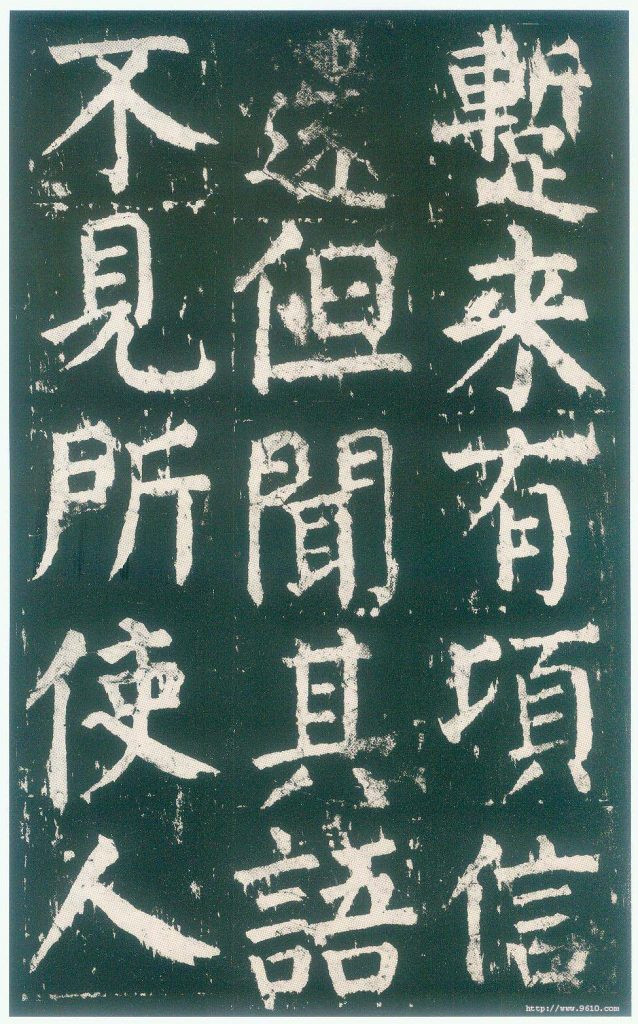 蹔来有頃信
還但聞其語
不見所使人
http://www.9610.com